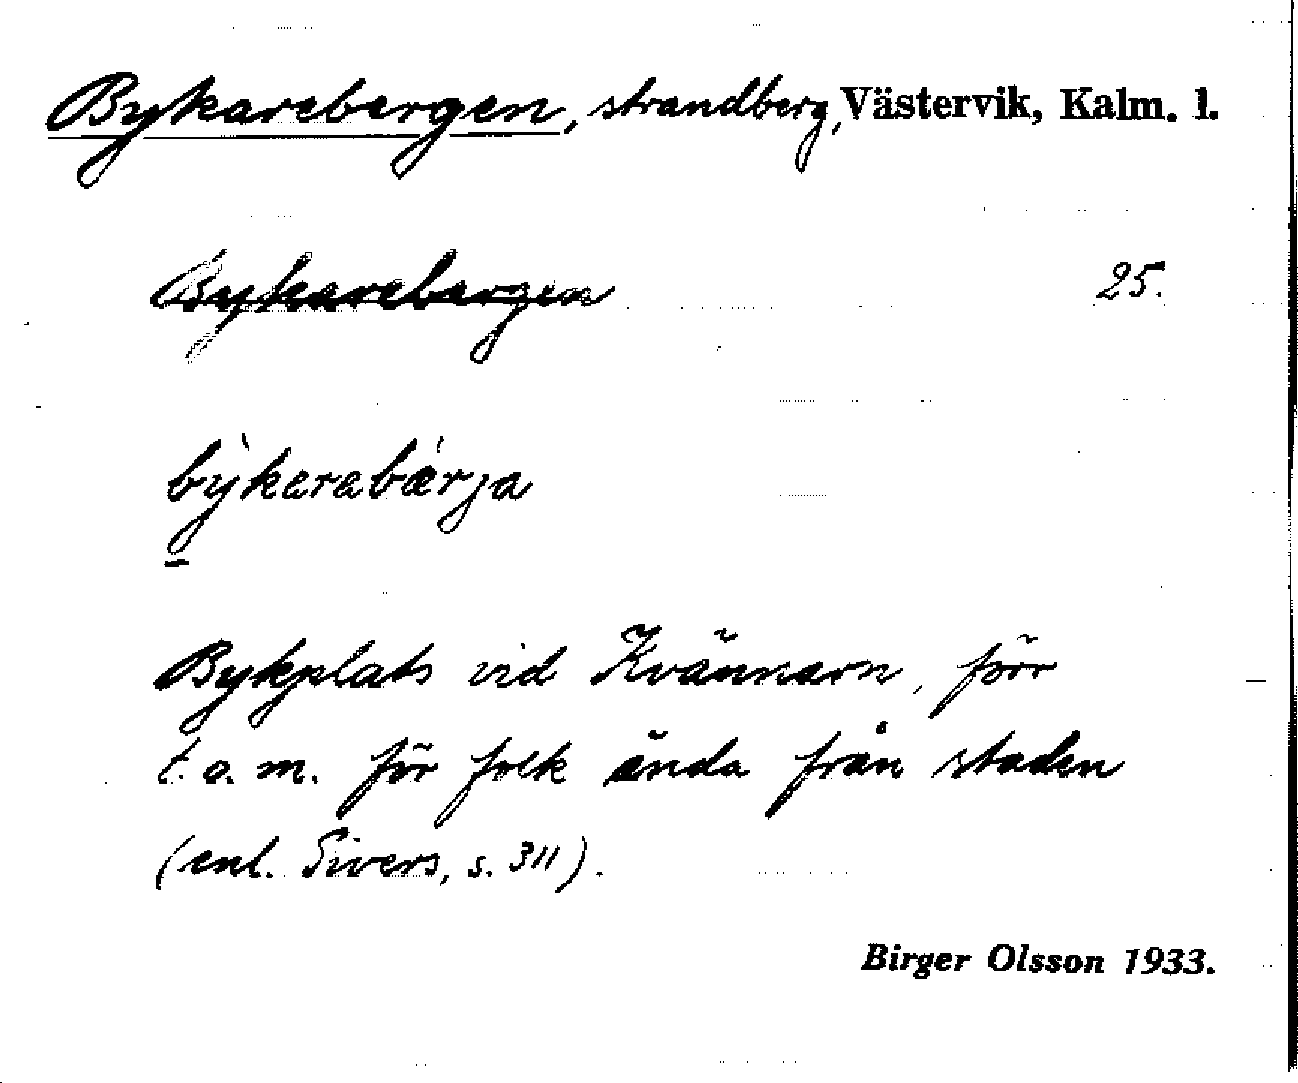 Bykarebergen, strandberg, Västervik, Kalm. l.
Bykarebergen 25.
bỳkarabǽrja
Bykplats vid Kvännarn, förr
t.o.m. för folk ända från staden
(enl. Sivers, s. 311).
Birger Olsson 1933.